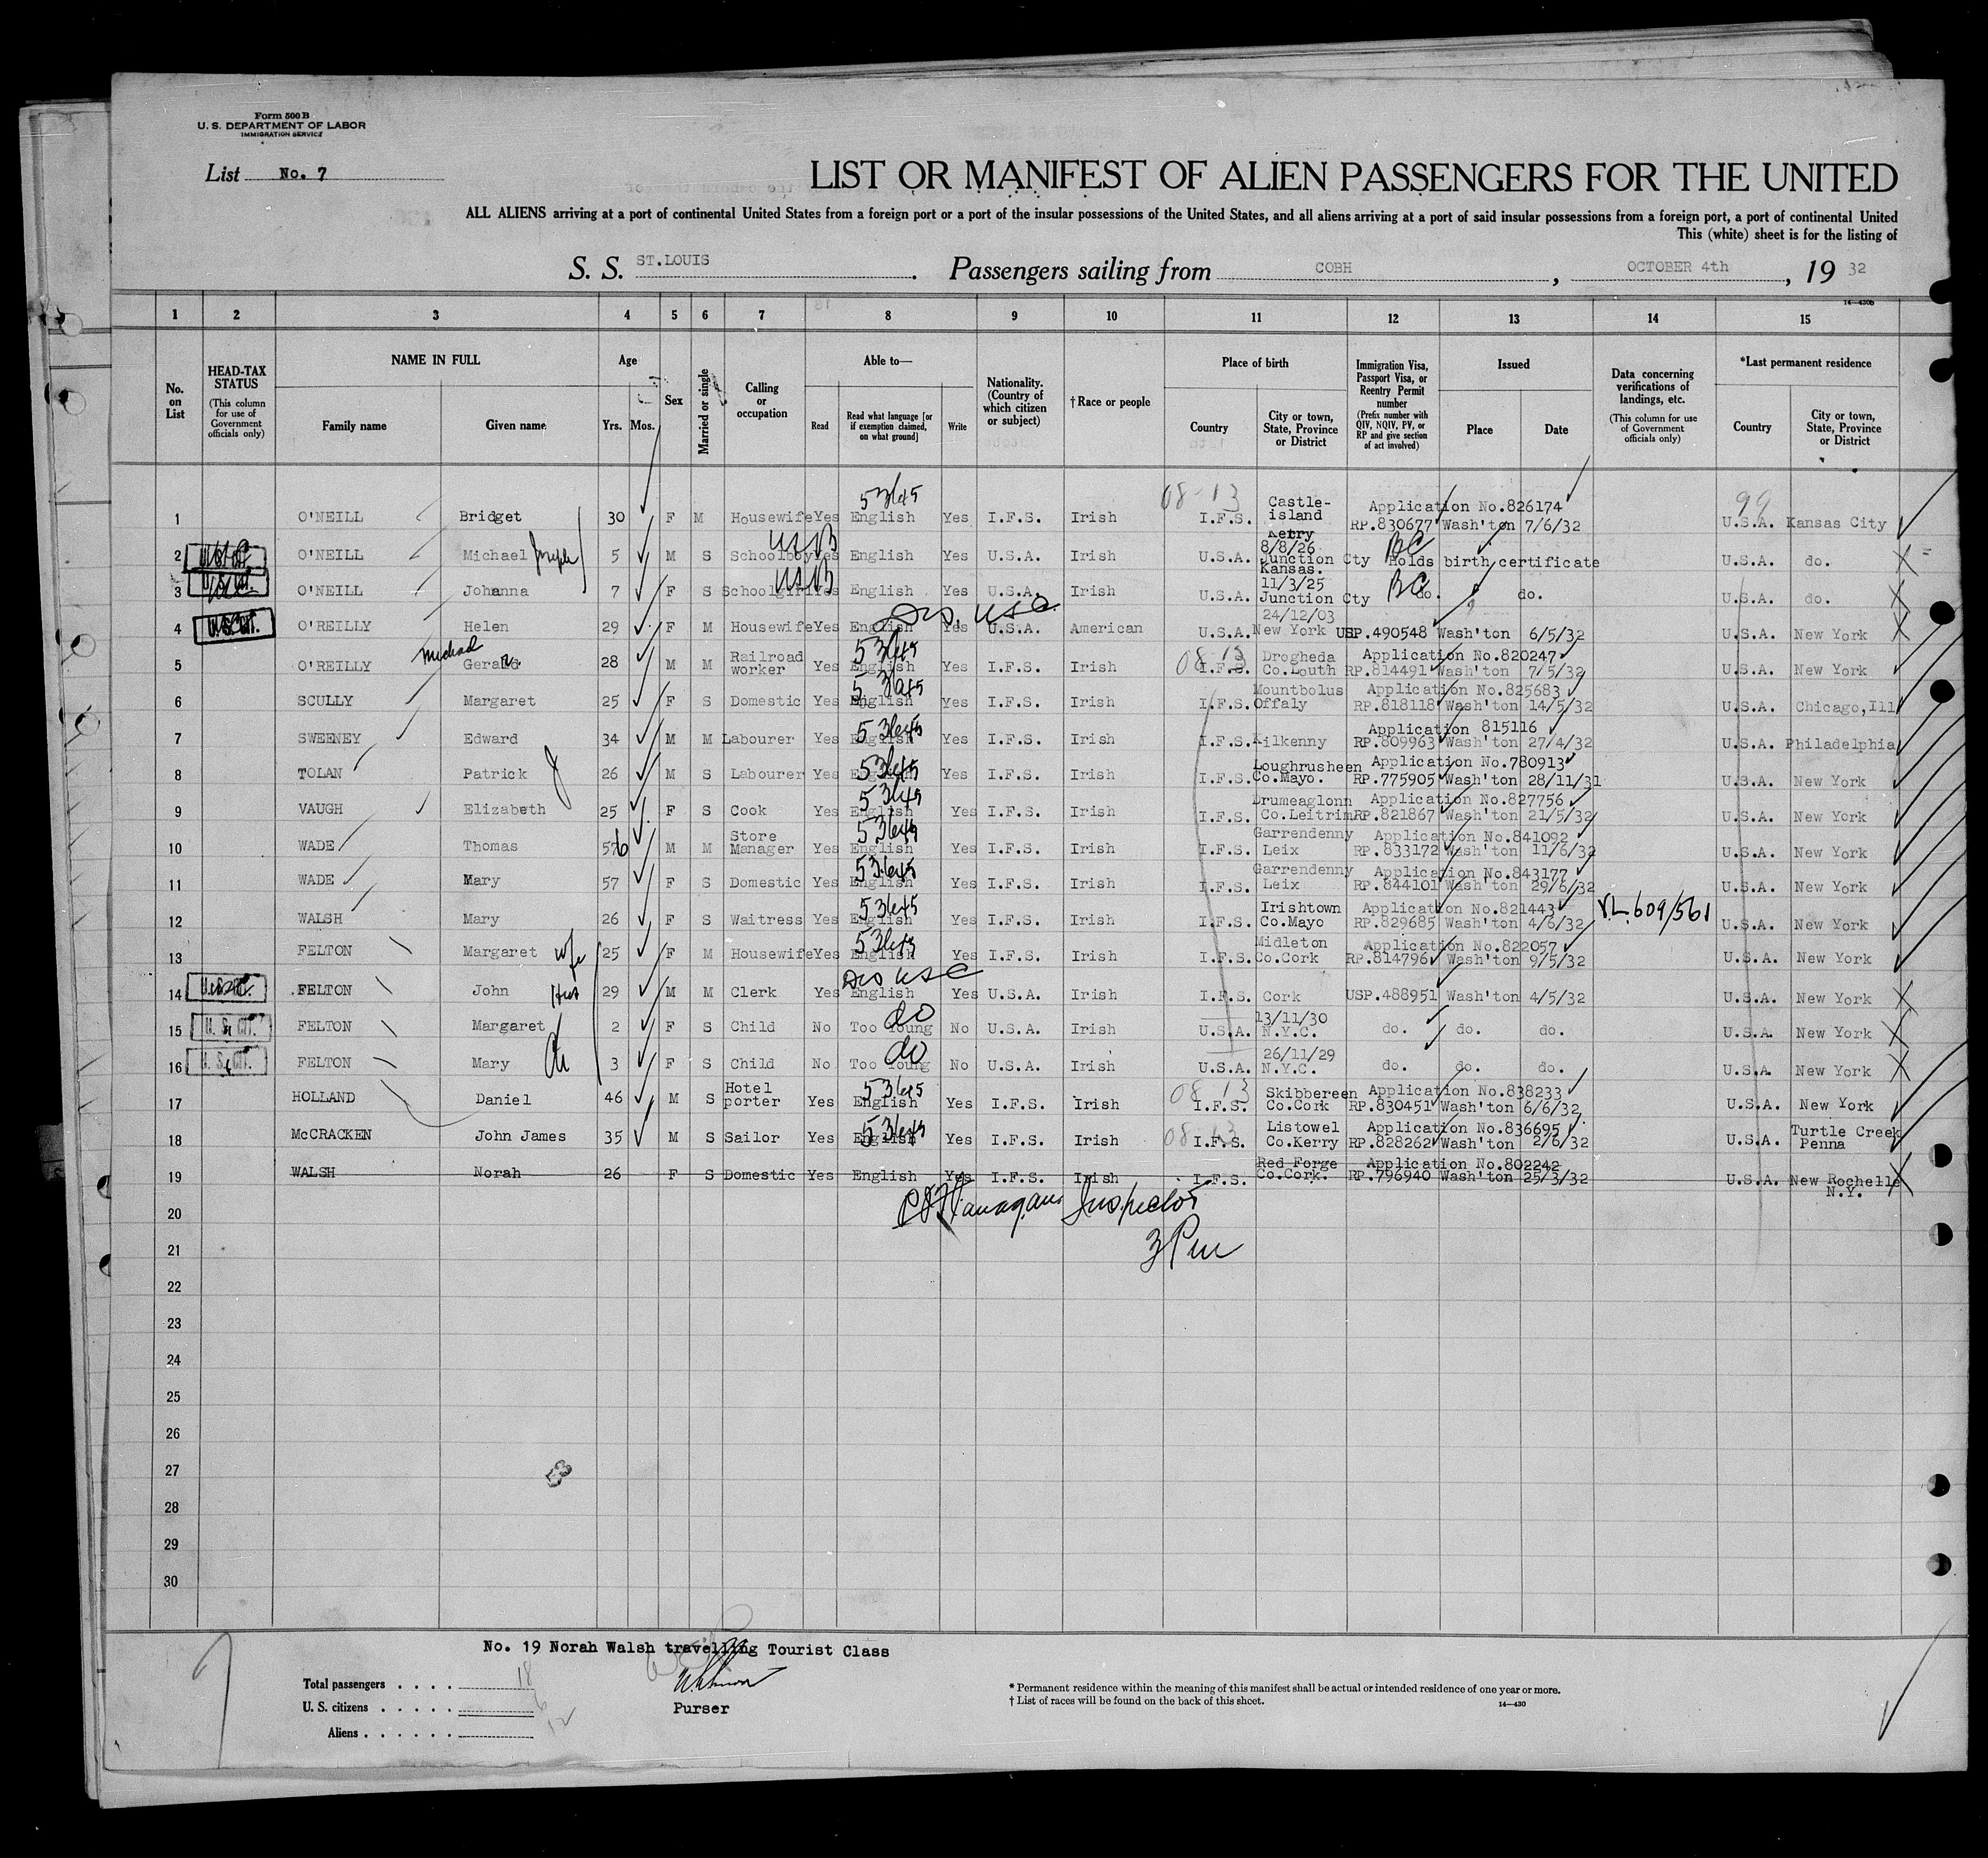 Form 500 B
U. S. DEPARTMENT OF LABOR
IMMIGRATION SERVICE
List No. 7
LIST OR MANIFEST OF ALIEN PASSENGERS FOR THE UNITED
ALL ALIENS arriving at a port of continental United States from a foreign port or a port of the insular possessions of the United States, and all aliens arriving at a port of said insular possessions from a foreign port, a port of continental United
This (white) sheet is for the listing of
S. S. ST.LOUIS . Passengers sailing from COBH , OCTOBER 4th , 19 32
14—430b
1 2 3 4 5 6 7 8 9 10 11 12 13 14 15
No. on List
HEAD-TAX STATUS (This column for use of Government officials only)
NAME IN FULL
Family name Given name
Age Yrs. Mos.
Sex
Married or single
Calling or occupation
Able to—
Read Read what language [or if exemption claimed, on what ground] Write
Nationality. (Country of which citizen or subject)
†Race or people
Place of birth
Country City or town, State, Province or District
Immigration Visa, Passport Visa, or Reentry Permit number (Prefix number with QIV, NQIV, PV, or RP and give section of act involved)
Issued
Place Date
Data concerning verifications of landings, etc. (This column for use of Government officials only)
*Last permanent residence
Country City or town, State, Province or District
1 O'NEILL Bridget 30 F M Housewife Yes English Yes I.F.S. Irish 08-13 I.F.S. Castle-island Kerry Application No.826174 RP.830677 Wash'ton 7/6/32 99 U.S.A. Kansas City
2 O'NEILL Michael Joseph 5 M S Schoolboy Yes English Yes U.S.A. Irish U.S.A. 8/8/26 Junction Cty Kansas. BC Holds birth certificate U.S.A. do.
3 O'NEILL Johanna 7 F S Schoolgirl Yes English Yes U.S.A. Irish U.S.A. 11/3/25 Junction Cty BC do. do. U.S.A. do.
4 U.S.CIT. O'REILLY Helen 29 F M Housewife Yes English Yes U.S.A. American U.S.A. 24/12/03 New York USP.490548 Wash'ton 6/5/32 U.S.A. New York
5 O'REILLY Michael Gerald 28 M M Railroad worker Yes English Yes I.F.S. Irish 08-13 I.F.S. Drogheda Co.Louth Application No.820247 RP.814491 Wash'ton 7/5/32 U.S.A. New York
6 SCULLY Margaret 25 F S Domestic Yes English Yes I.F.S. Irish I.F.S. Mountbolus Offaly Application No.825683 RP.818118 Wash'ton 14/5/32 U.S.A. Chicago,Ill
7 SWEENEY Edward 34 M M Labourer Yes English Yes I.F.S. Irish I.F.S. Kilkenny Application 815116 RP.809963 Wash'ton 27/4/32 U.S.A. Philadelphia
8 TOLAN Patrick J 26 M S Labourer Yes English Yes I.F.S. Irish I.F.S. Loughrusheen Co.Mayo. Application No.780913 RP.775905 Wash'ton 28/11/31 U.S.A. New York
9 VAUGH Elizabeth 25 F S Cook Yes English Yes I.F.S. Irish I.F.S. Drumeaglonn Co.Leitrim Application No.827756 RP.821867 Wash'ton 21/5/32 U.S.A. New York
10 WADE Thomas 56 M M Store Manager Yes English Yes I.F.S. Irish I.F.S. Garrendenny Leix Application No.841092 RP.833172 Wash'ton 11/6/32 U.S.A. New York
11 WADE Mary 57 F S Domestic Yes English Yes I.F.S. Irish I.F.S. Garrendenny Leix Application No.843177 RP.844101 Wash'ton 29/6/32 U.S.A. New York
12 WALSH Mary 26 F S Waitress Yes English Yes I.F.S. Irish I.F.S. Irishtown Co.Mayo Application No.821443 RP.829685 Wash'ton 4/6/32 V.L.609/561 U.S.A. New York
13 FELTON Margaret wife 25 F M Housewife Yes English Yes I.F.S. Irish I.F.S. Midleton Co.Cork Application No.822057 RP.814796 Wash'ton 9/5/32 U.S.A. New York
14 FELTON John Hus 29 M M Clerk Yes English Yes U.S.A. Irish I.F.S. Cork USP.488951 Wash'ton 4/5/32 U.S.A. New York
15 U. S. CIT. FELTON Margaret 2 F S Child No Too Young do No U.S.A. Irish U.S.A. 13/11/30 N.Y.C. do. do. do. U.S.A. New York
16 U. S. CIT. FELTON Mary 3 F S Child No Too Young do No U.S.A. Irish U.S.A. 26/11/29 N.Y.C. do. do. do. U.S.A. New York
17 HOLLAND Daniel 46 M S Hotel porter Yes English Yes I.F.S. Irish 08 13 I.F.S. Skibbereen Co.Cork Application No.838233 RP.830451 Wash'ton 6/6/32 U.S.A. New York
18 McCRACKEN John James 35 M S Sailor Yes English Yes I.F.S. Irish 08-13 I.F.S. Listowel Co.Kerry Application No.836695 RP.828262 Wash'ton 2/6/32 U.S.A. Turtle Creek Penna
19 WALSH Norah 26 F S Domestic Yes English Yes I.F.S. Irish I.F.S. Red Forge Co.Cork. Application No.802242 RP.796940 Wash'ton 25/3/32 U.S.A. New Rochelle N.Y.
20 Flanagan Inspector
21
22
23
24
25
26
27
28
29
30
No. 19 Norah Walsh travelling Tourist Class
Total passengers . . . . 18
U. S. citizens . . . . . 6
Aliens . . . . . . 12
Purser
* Permanent residence within the meaning of this manifest shall be actual or intended residence of one year or more.
† List of races will be found on the back of this sheet.
14—430